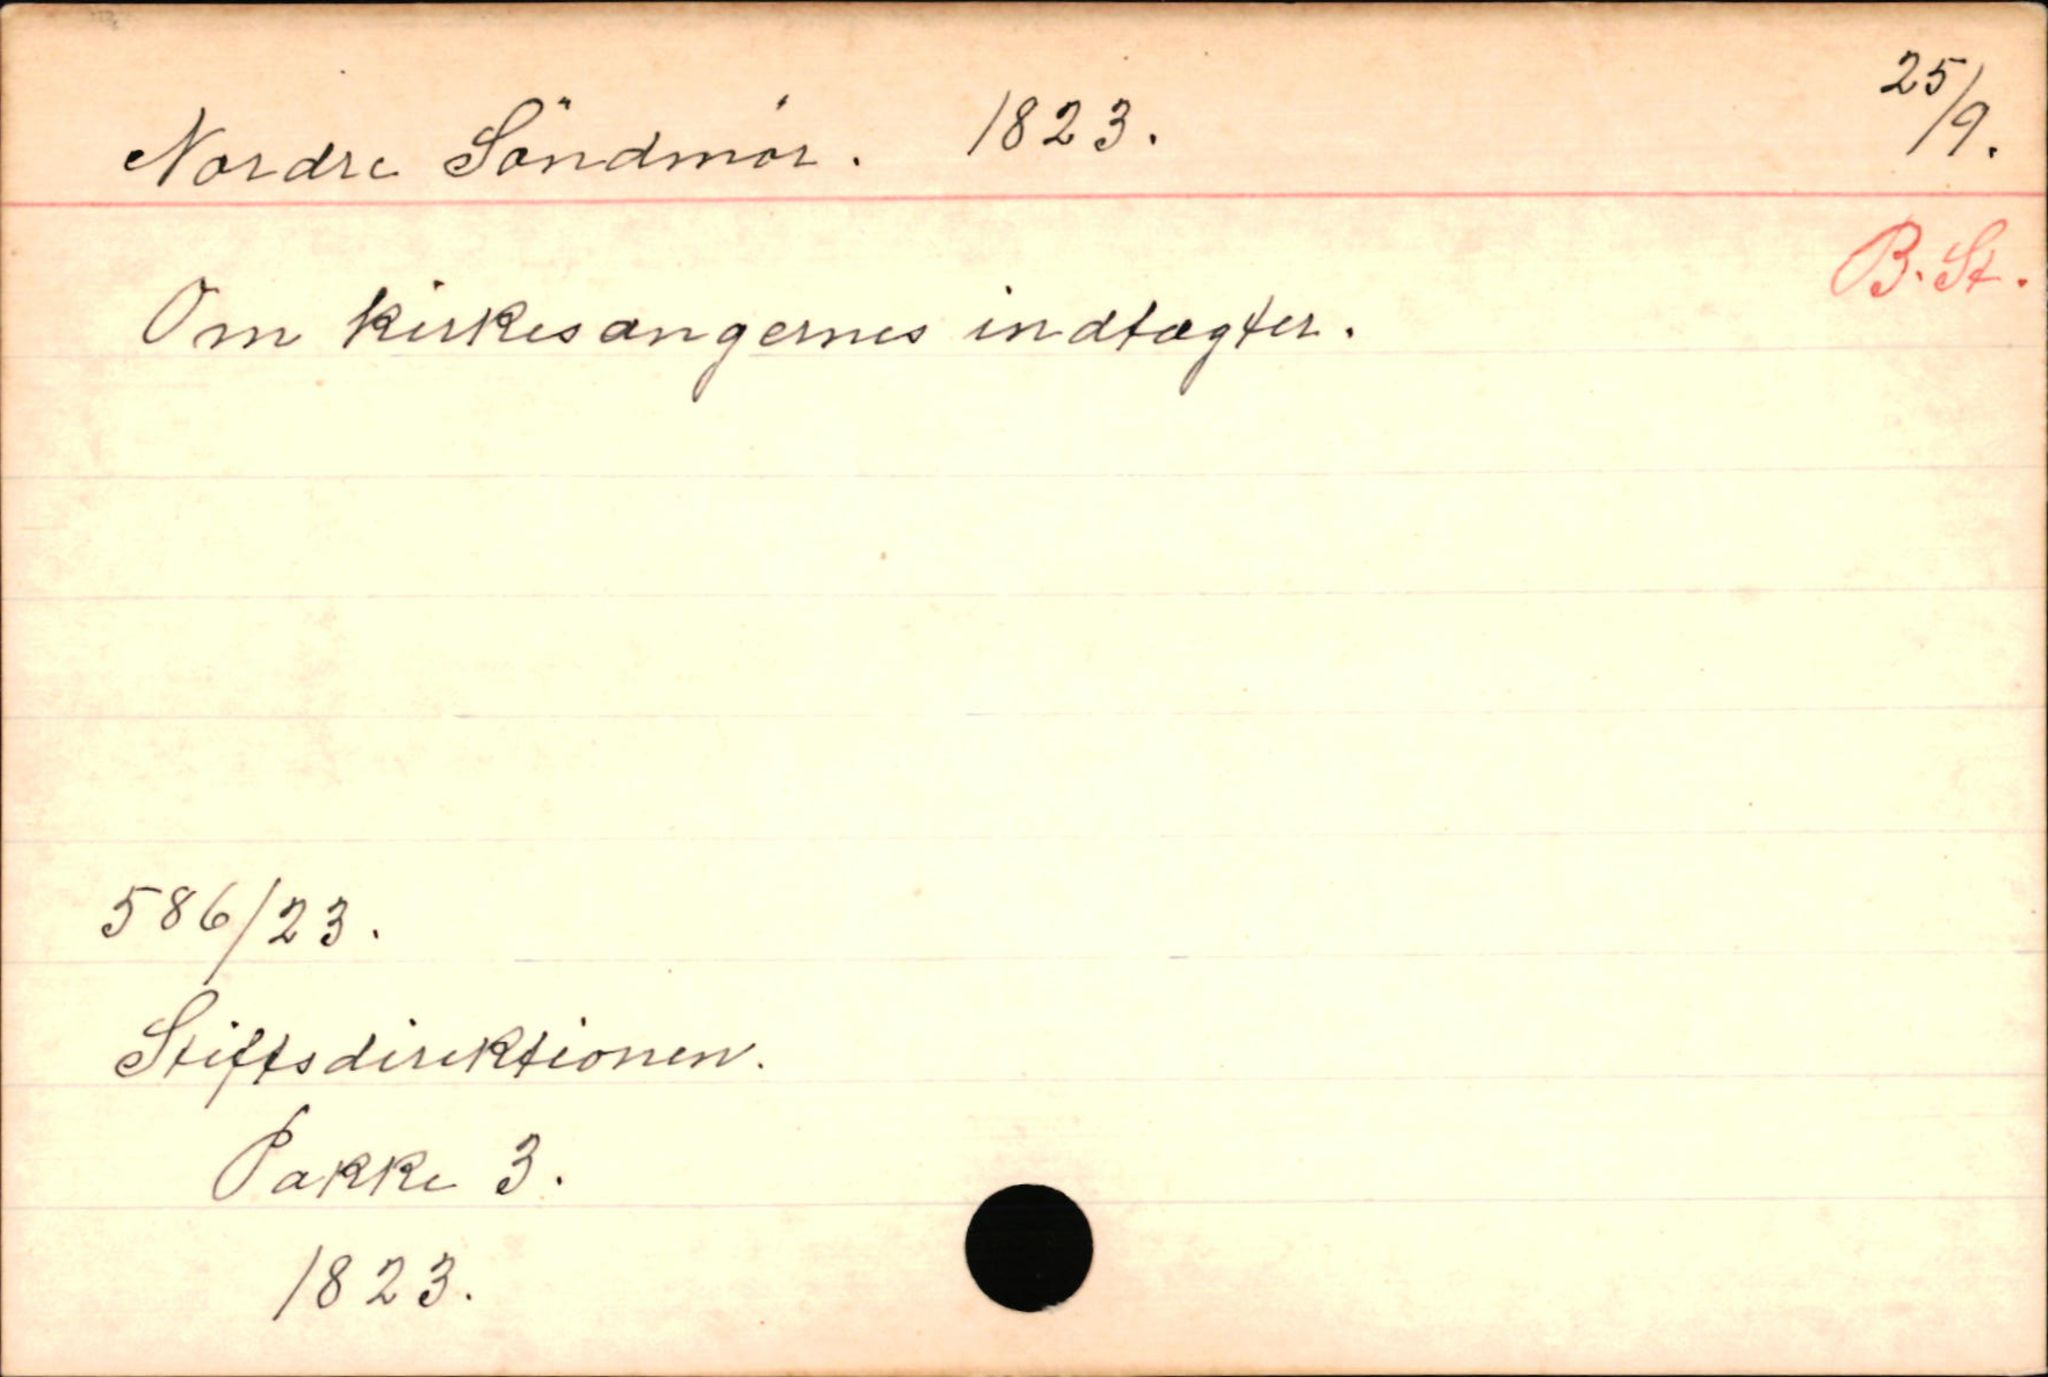 Nordre Söndmör. 1823. 25/9.
B. St.
Om kirkesangernes indtægter.
586/23.
Stiftsdirektionen.
Pakke 3.
1823.